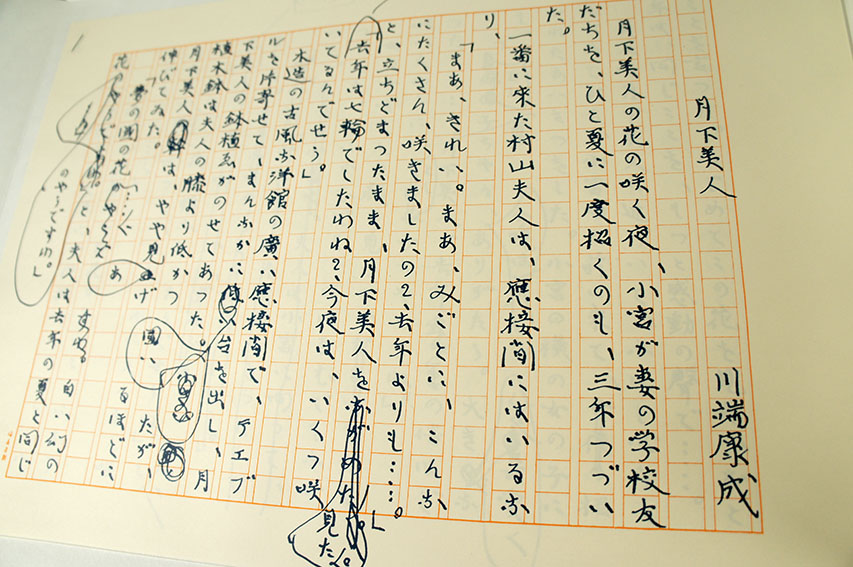 月下美人
川端康成
月下美人の花の咲く夜、小宮が妻の学校友
だちを、ひと夏に一度招くのも、三年つづい
た。
一番に来た村山夫人は、應接間にはいるな
り、
「まあ、きれい。まあ、みごとに、こんな
にたくさん、咲きましたの?、去年よりも……。」
と、立ちどまつたまま、月下美人を見た。
「去年は七輪でしたわね?、今夜は、いくつ咲
いてるんでせう。」
木造の古風な洋館の廣い應接間で、テエブ
ルを片寄せて、まんなかに台を出し、月
下美人の鉢植ゑがのせてあつた。圓い
植木鉢は夫人の膝より低かつたが、
月下美人は、やや見上げるほどに
伸びてゐた。
「夢の国の花 白い幻の
花 と、夫人は去年の夏と同じ
のやうですわ。」